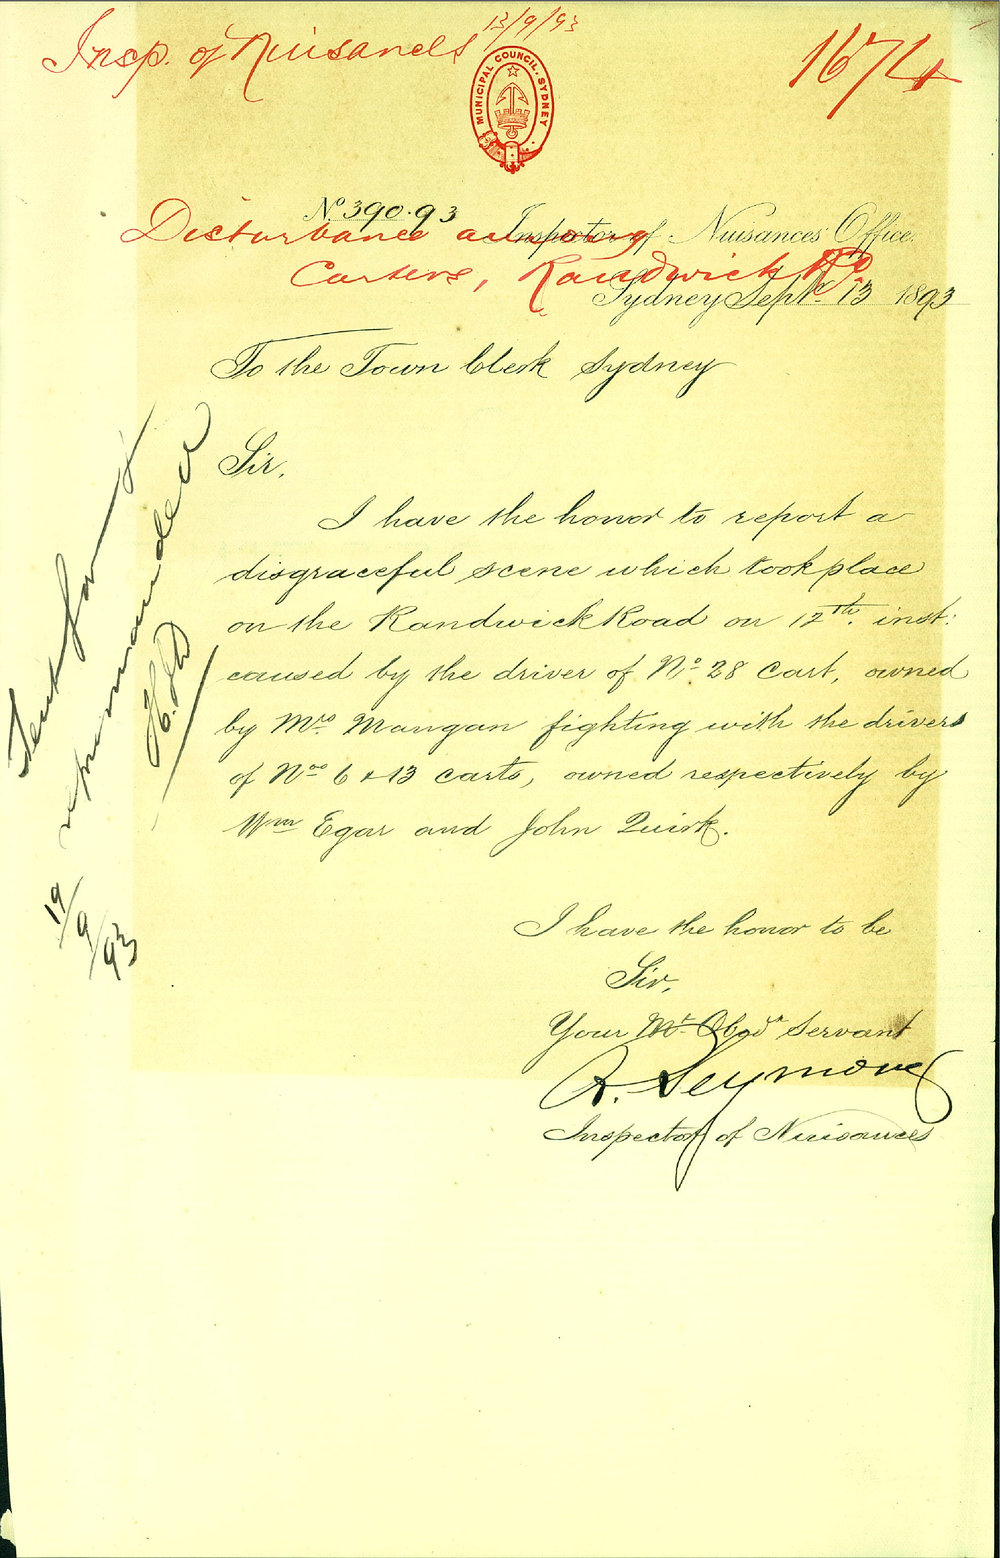 Insp. of Nuisances 13/9/93
1674
MUNICIPAL COUNCIL. SYDNEY
No. 390.93
Inspector of Nuisances Office.
Disturbance among
Carters, Randwick Rd.
Sydney Sept. 13 1893
To the Town Clerk Sydney
Sir,
I have the honor to report a
disgraceful scene which took place
on the Randwick Road on 12th. inst:
caused by the driver of No 28 Cart, owned
by Mrs. Mangan fighting with the drivers
of Nos 6 & 13 Carts, owned respectively by
Wm Egar and John Quirk.
I have the honor to be
Sir,
Your Mt. Obdt. Servant
R. Seymour
Inspector of Nuisances
Sent for &
reprimanded
19/9/93